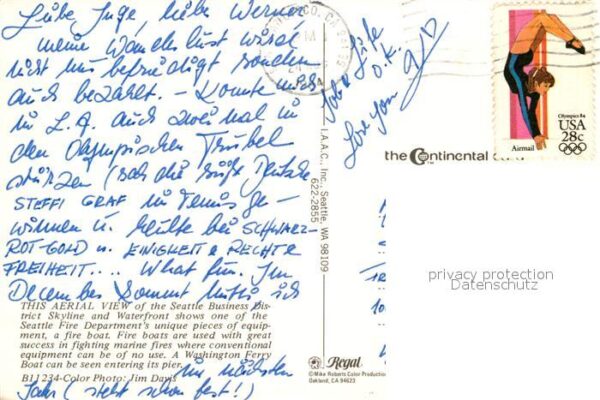 Liebe Inge, liebe Werner
meine Wanderlust wird
nicht nur befriedigt sondern
auch bezahlt. – Konnte mich
in L.A. auch zweimal in
den Olympischen Trubel
stürzen (sah die süße Deutsche
STEFFI GRAF im Tennis ge-
winnen u. heulte bei SCHWARZ-
ROT-GOLD u. EINIGKEIT & RECHT &
FREIHEIT.... What fun. Im
December kommt Mutti, ich
THIS AERIAL VIEW of the Seattle Business Dis-
trict Skyline and Waterfront shows one of the
Seattle Fire Department's unique pieces of equip-
ment, a fire boat. Fire boats are used with great
success in fighting marine fires where conventional
equipment can be of no use. A Washington Ferry
Boat can be seen entering its pier.
B11234-Color Photo: Jim Davis
im nächsten
Jahr (steht schon fest!)
Job & Life
O.K.
Love you
CO, CA
I.A.A.C., Inc. Seattle, WA 98109
622-2855
the Continental card
Olympics 84
USA
28c
Airmail
privacy protection
Datenschutz
Regal
©Mike Roberts Color Production
Oakland, CA 94623